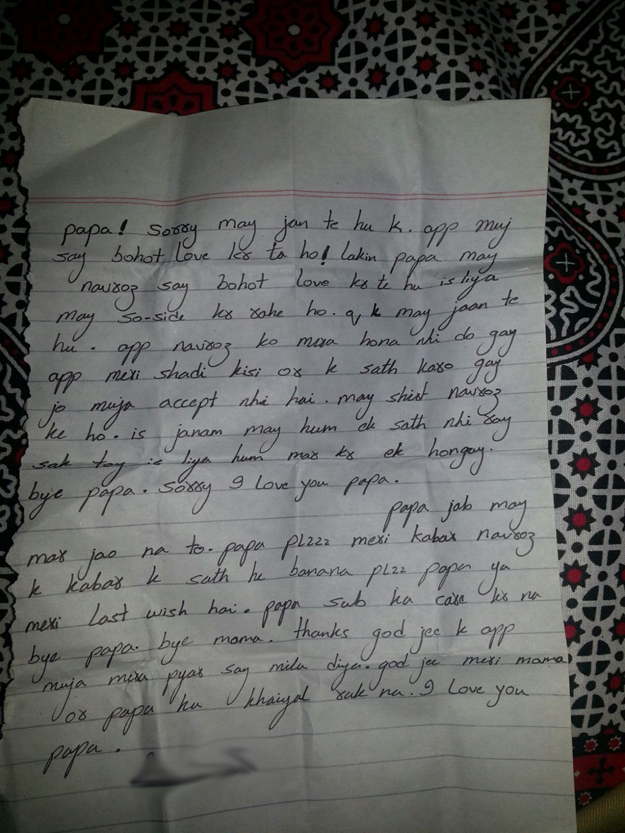 papa! Sorry may jan te hu k. app muj
say bohot love kr ta ho! lakin papa may
navroz say bohot love kr te hu is liya
may so-side kr rahe ho. q k may jaan te
hu. app navroz ko mera hona nhi do gay
app meri shadi kisi or k sath karo gay
jo muja accept nhi hai. may shirt navroz
ke ho. is janam may hum ek sath nhi ray
sak tay is liya hum mar kr ek hongay.
bye papa. Sorry I love you papa.
papa jab may
mar jao na to. papa plzzz meri kabar navroz
k kabar k sath he banana plzz papa ya
meri last wish hai. papa sub ka care kr na
bye papa. bye mama. thanks god jee k app
muja mera pyar say mila diya. god jee meri mama
or papa ka khaiyal rak na. I love you
papa.